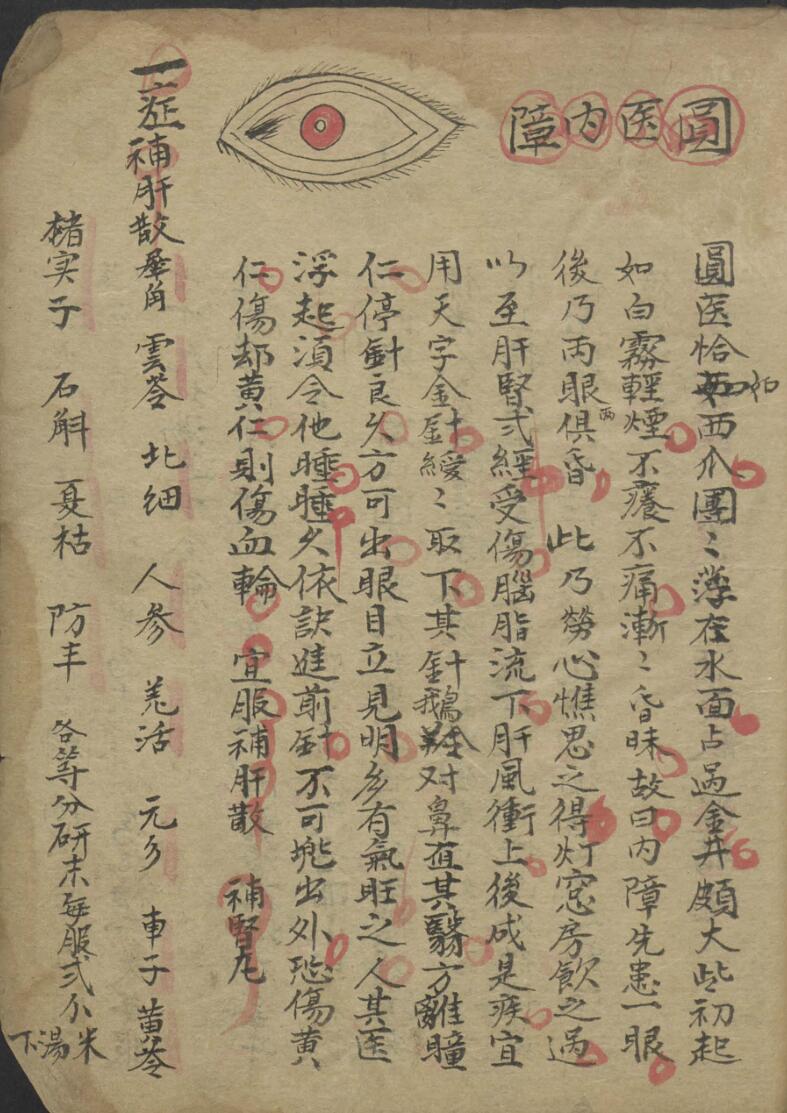 圓医内障
圓医恰如西㕥團〻浮在水面占過金井頗大些初起
如白霧輕煙不癢不痛漸〻昏昧故曰内障先患一眼
後乃両眼俱昏此乃勞心憔思之得灯窓房飲之過
以至肝腎弍經受傷腦脂流下肝風衝上後成是疾宜
用天字金針緩〻取下其針鵝翎对鼻直其翳方離瞳
仁停針良久方可出眼目立見明多有氣旺之人其医
浮起須令他睡睡久依訣進前針不可㧡出外恐傷黄
仁傷却黄仁則傷血輪宜服補肝散 補腎丸
一症補肝散 犀角 雲苓 北細 人參 羌活 元参 車子 黄芩
楮实子 石斛 夏枯 防丰 各等分研末每服弍㕥米
湯下